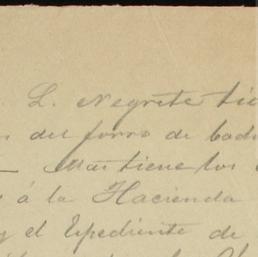 L. Negrete tie
del forro de bad
tiene los
á la Hacienda
y el Espediente de